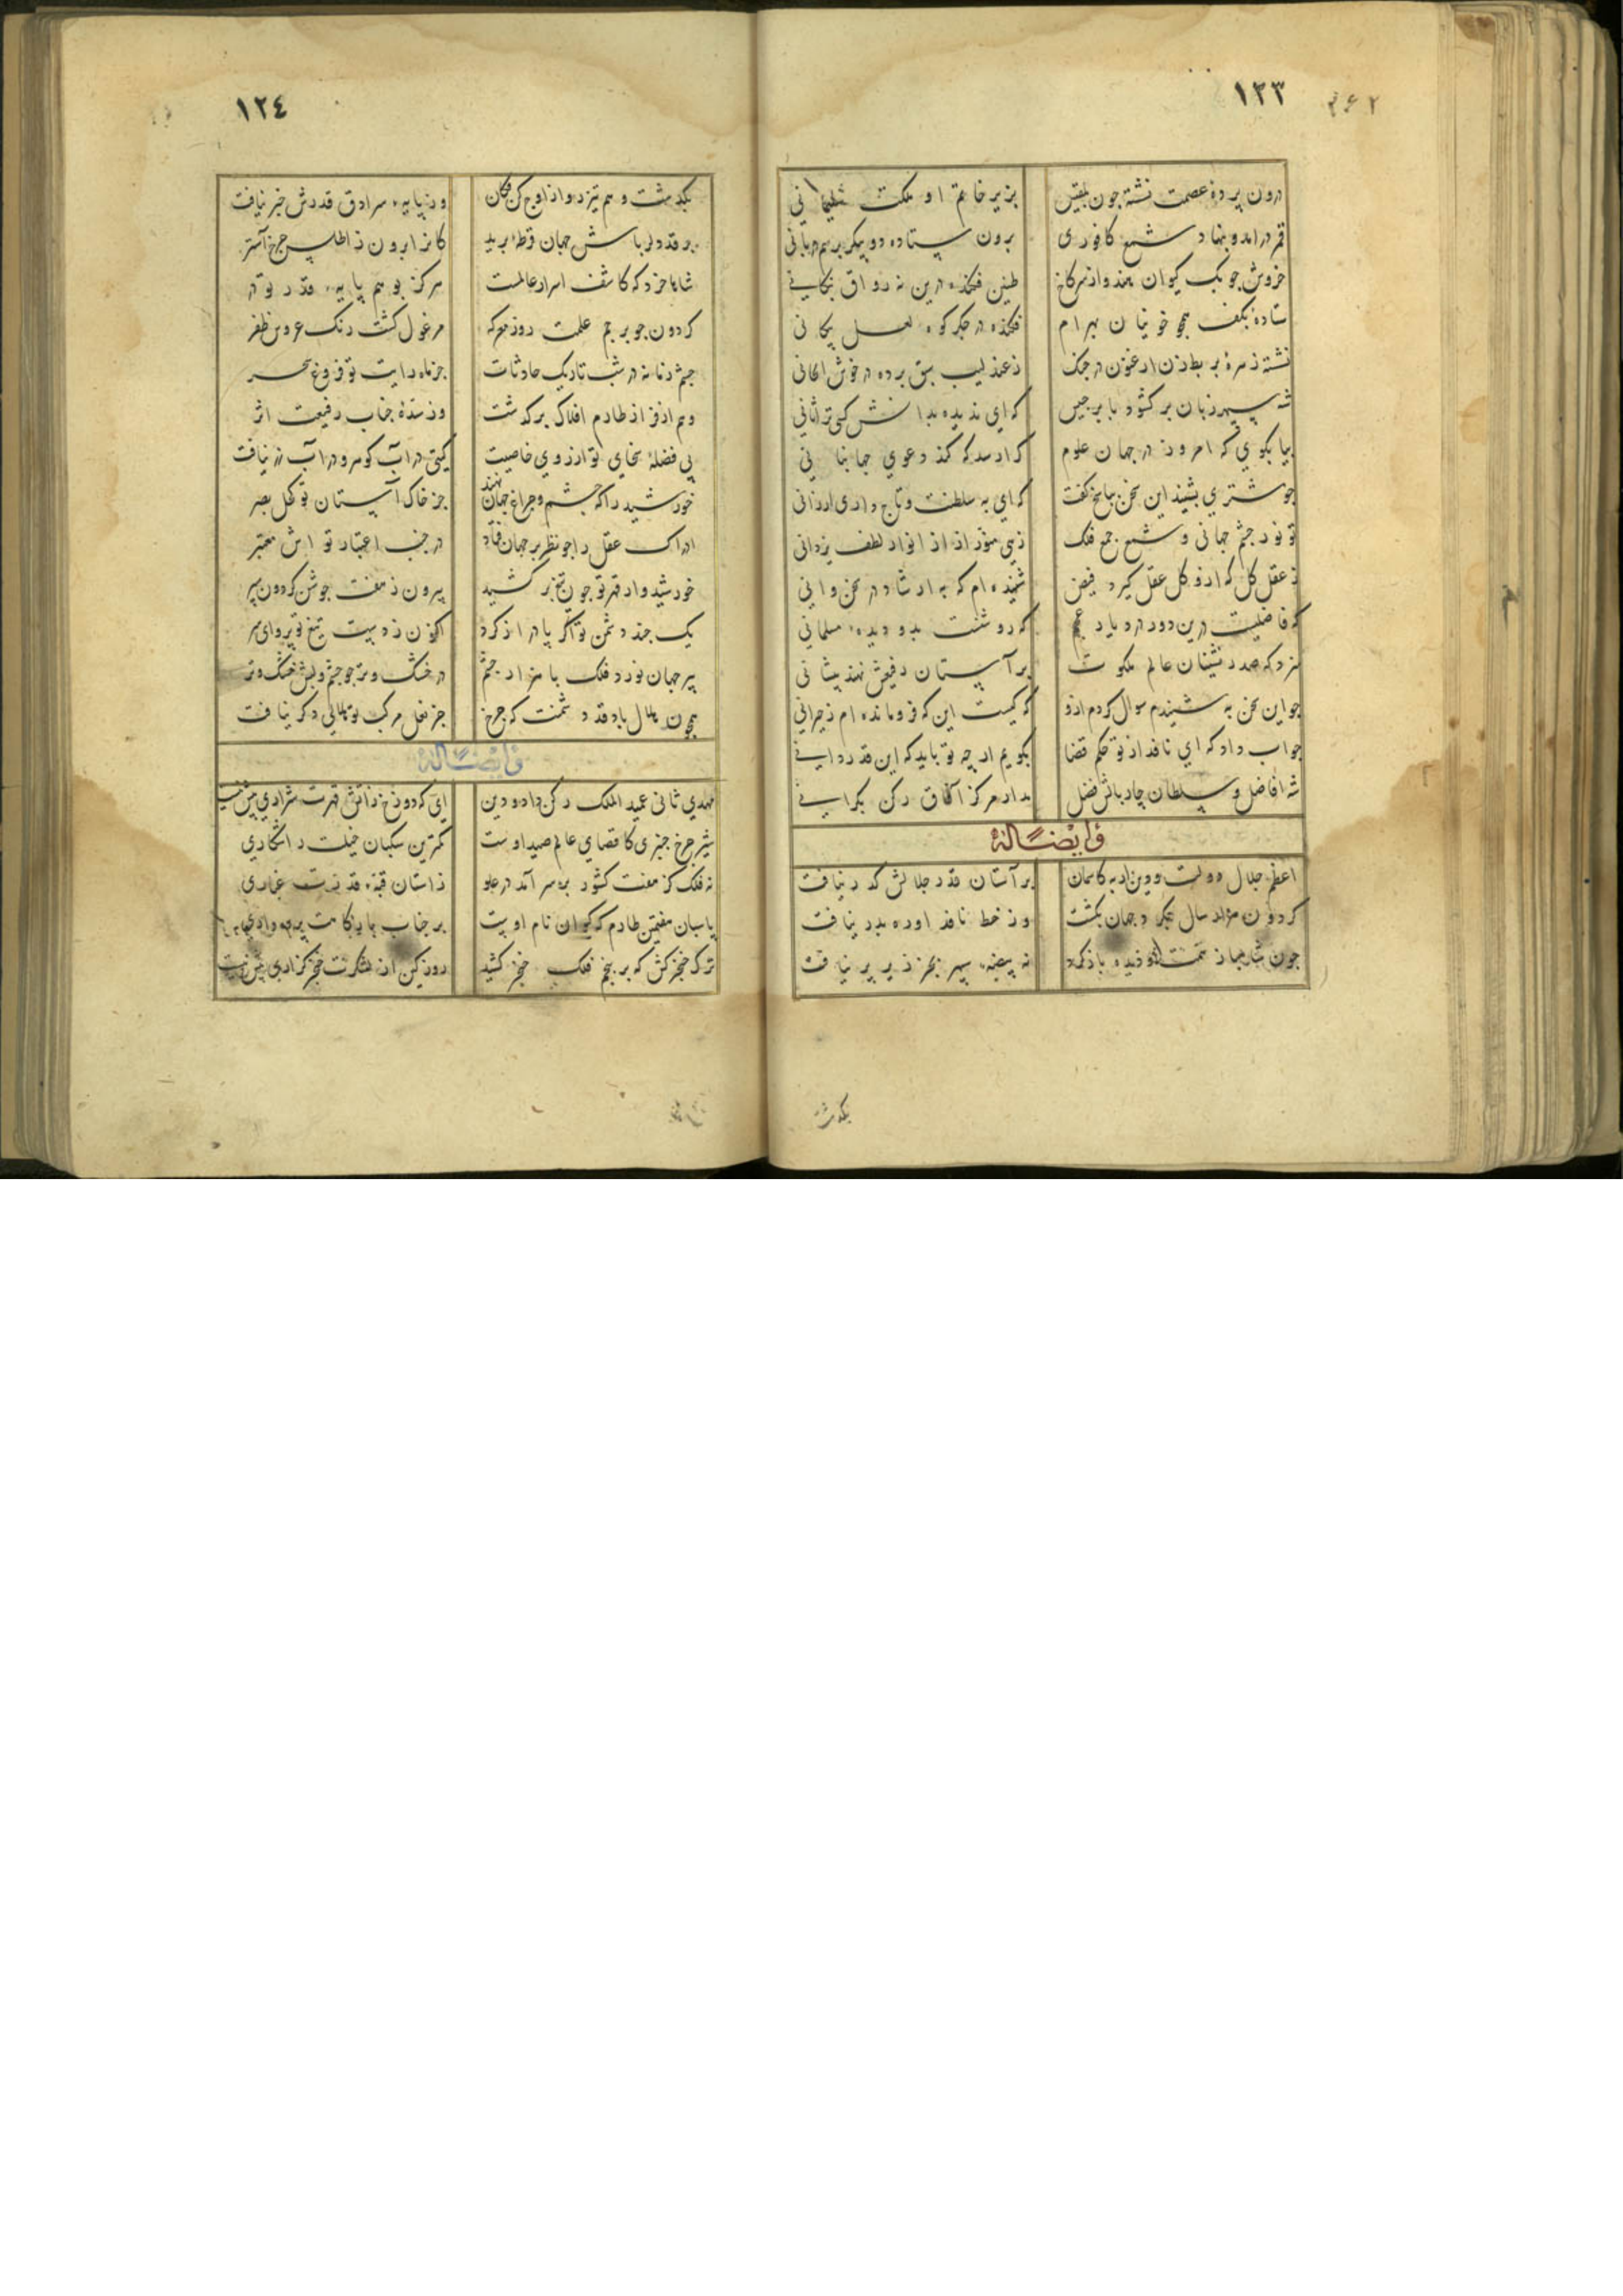 ١٢٣
درون پرده عصمت نشته جون بلقیس بزیر خاتم او ملکت سلیمانی
قمر درامد و بنهاد شمع کافوری برون ستاده دو پیکر برسم دربانی
خروش جوبک کیوان هندو از سر کاخ طنین فکنده درین نه رواق
ستاده بکف همجو خونیان بهرام فکنده در جکر کوه لعل پیکانی
نشته زهره بربط زن ارغنون در جنک ز عندلیب سبق برده در خوش الحانی
شه سپهر زبان بر کشود با برجیس که ای ندیده بدانش کسی ترا ثانی
بیا بکوی که امروز در جهان علوم کرا رسد که کند دعوی جهانبانی
جو مشتری بشنید این سخن بپاسخ کفت که ای به سلطنت و تاج داری ارزانی
تو نور جشم جهانی و شمع جمع فلک زهی منور از انوار لطف یزدانی
ز عقل کل که ازو کل عقل کیرد فیض شنیده ام که به ارشاد در سخن دانی
که فاضلیست درین دور در دیار عجم که روشنست بدو دیده مسلمانی
سزد که صدر نشینان عالم ملکوت بر آستان رفیعش نهند پیشانی
جو این سخن به شنیدم سوال کردم ازو که کیست این که فرو مانده ام ز حیرانی
جواب داد که ای نافذ از تو حکم قضا بکویم ارجه تو باید که این قدر دانی
شه افاضل و سلطان جار بالش فضل مدار مرکز آفاق رکن بکرانی
و ایضاً له
اعظم جلال دولت و دین ار به کاسمان بر آستان قدر جلالش کذر نیافت
کردون هزار سال بکرد جهان بکشت وز خط نافذ اوره بدر نیافت
جون شاهباز همت او دیده باز کرد نه بیضه سپهر بجز زیر پر نیافت
بکذشت
١٢٤
بکذشت وهم تیزرو از اوج کن فکان وز پایه سرادق قدرش خبر نیافت
بر قد کبریاش جهان قرطه برید کانرا برون ز اطلس جرخ آستر
شاها خرد که کاشف اسرار عالمست هرکز بوهم پایه قدر تو در
کردون جو پرجم علمت روز معرکه مرغول کشت رنک عروس ظفر
جشم زمانه در شب تاریک حادثات جز ماه رایت تو فروغ سحر
وهم ار فراز طارم افلاک برکذشت وز سده جناب رفیعت اثر
بی فضله سخای تو از روی خاصیت کیتی در آب کوهر و در آب زر نیافت
خورشید را که جشم و جراغ جهان نهند جز خاک آستان تو کحل بصر
ادراک عقل را جو نظر بر جهان فتاد در جنب اعتبار تو اش معتبر
خورشیدوار قهر تو جون تیغ برکشید بیرون ز هفت جوشن کردون سپر
یک جند دشمن تو اکر پا دراز کرد اکنون ز دهیبت تیغ تو پروای سر
پیر جهان نورد فلک با هزار جشم در خشک و تر جو جشم و لبش خشک و تر
همجون هلال باد قد دشمنت که جرخ جز نعل مرکب تو هلالی دکر نیافت
و ایضاً له
مهدی ثانی عمید الملک رکن داد و دین ای که دوزخ ز اتش قهرت شراری بیش نیست
شیر جرخ جنبری کاقصای عالم صید اوست کمترین سکبان خیلت را شکاری
نه فلک کز هفت کشور بر سر آمد در علو ز استان قبه قدرت غباری
پاسبان هفتمین طارم که کیوان نام اوست بر جناب بارکاهت پرده داری
ترک خنجرکش که بر پنجم فلک خنجر کشید روز کین از لشکرت خنجر کزاری بیش نیست